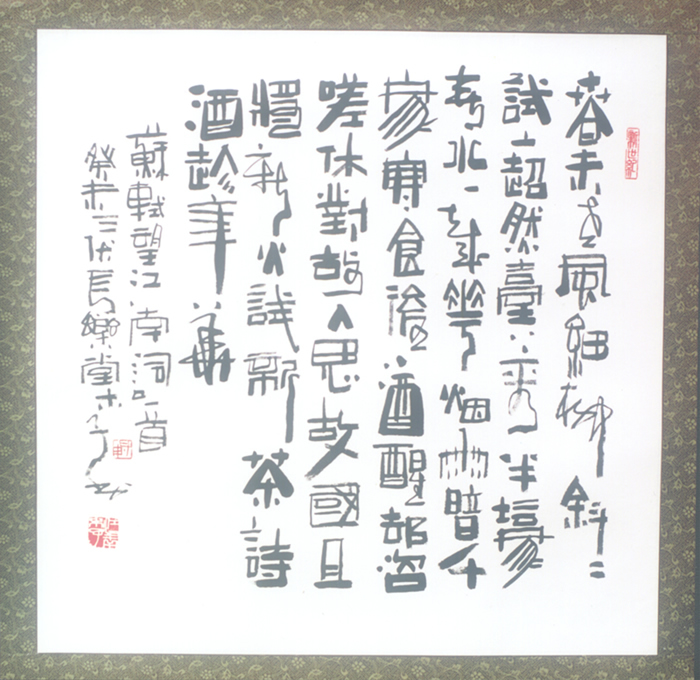 春未老風細柳斜〻
試上超然臺上看半壕
春水一城花烟雨暗千
家寒食後酒醒却咨
嗟休對故人思故國且
將新火試新茶詩
酒趁年華
蘇軾望江南詞一首
癸未三伏長樂堂木子